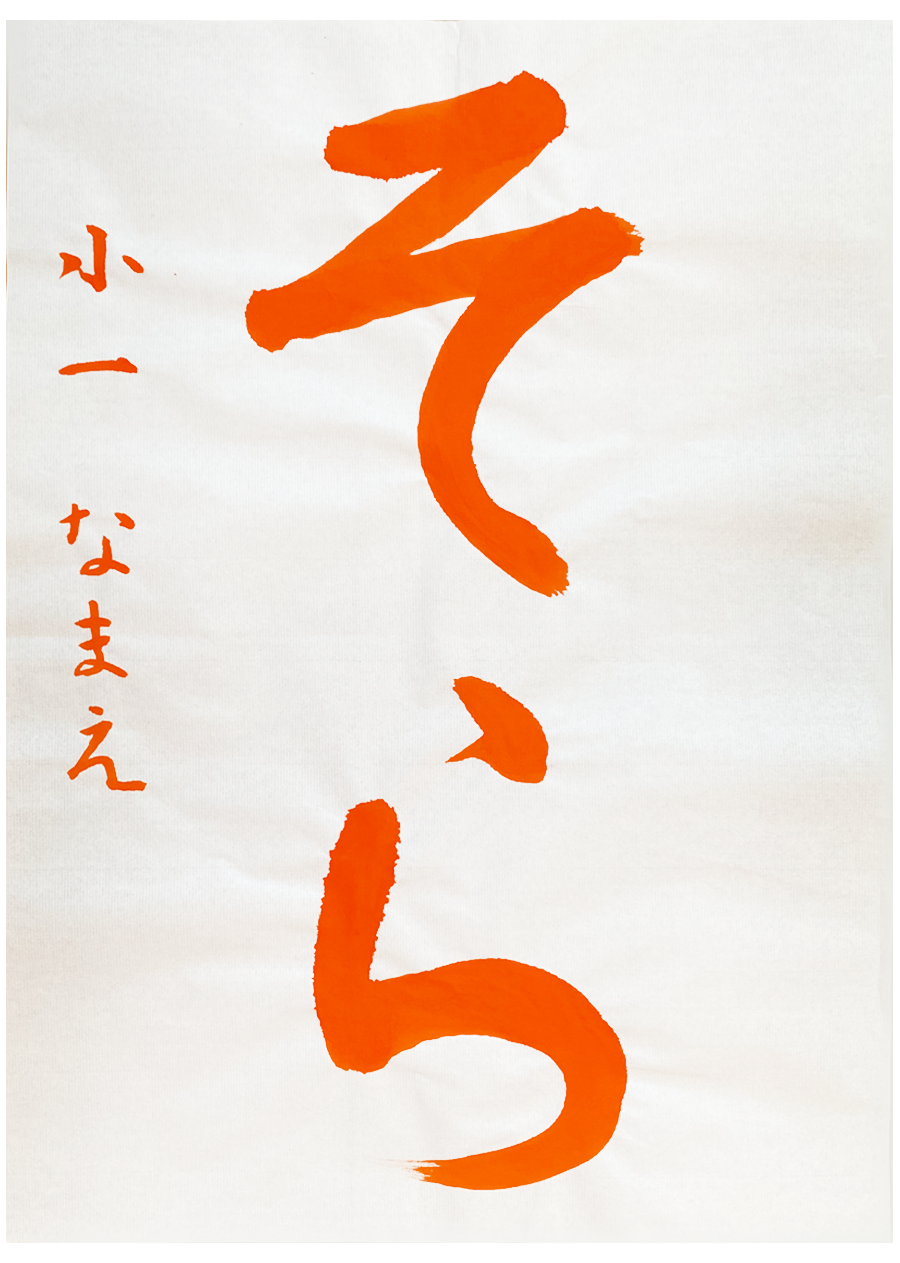 そら
小一 なまえ